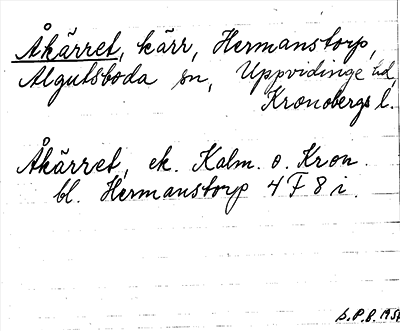 Åkärret, kärr, Hermanstorp,
Algutsboda sn, Uppvidinge hd,
Kronobergs l.
Åkärret, ek. Kalm. o. Kron.
bl. Hermanstorp 4 F 8 i.
S.P.B. 195